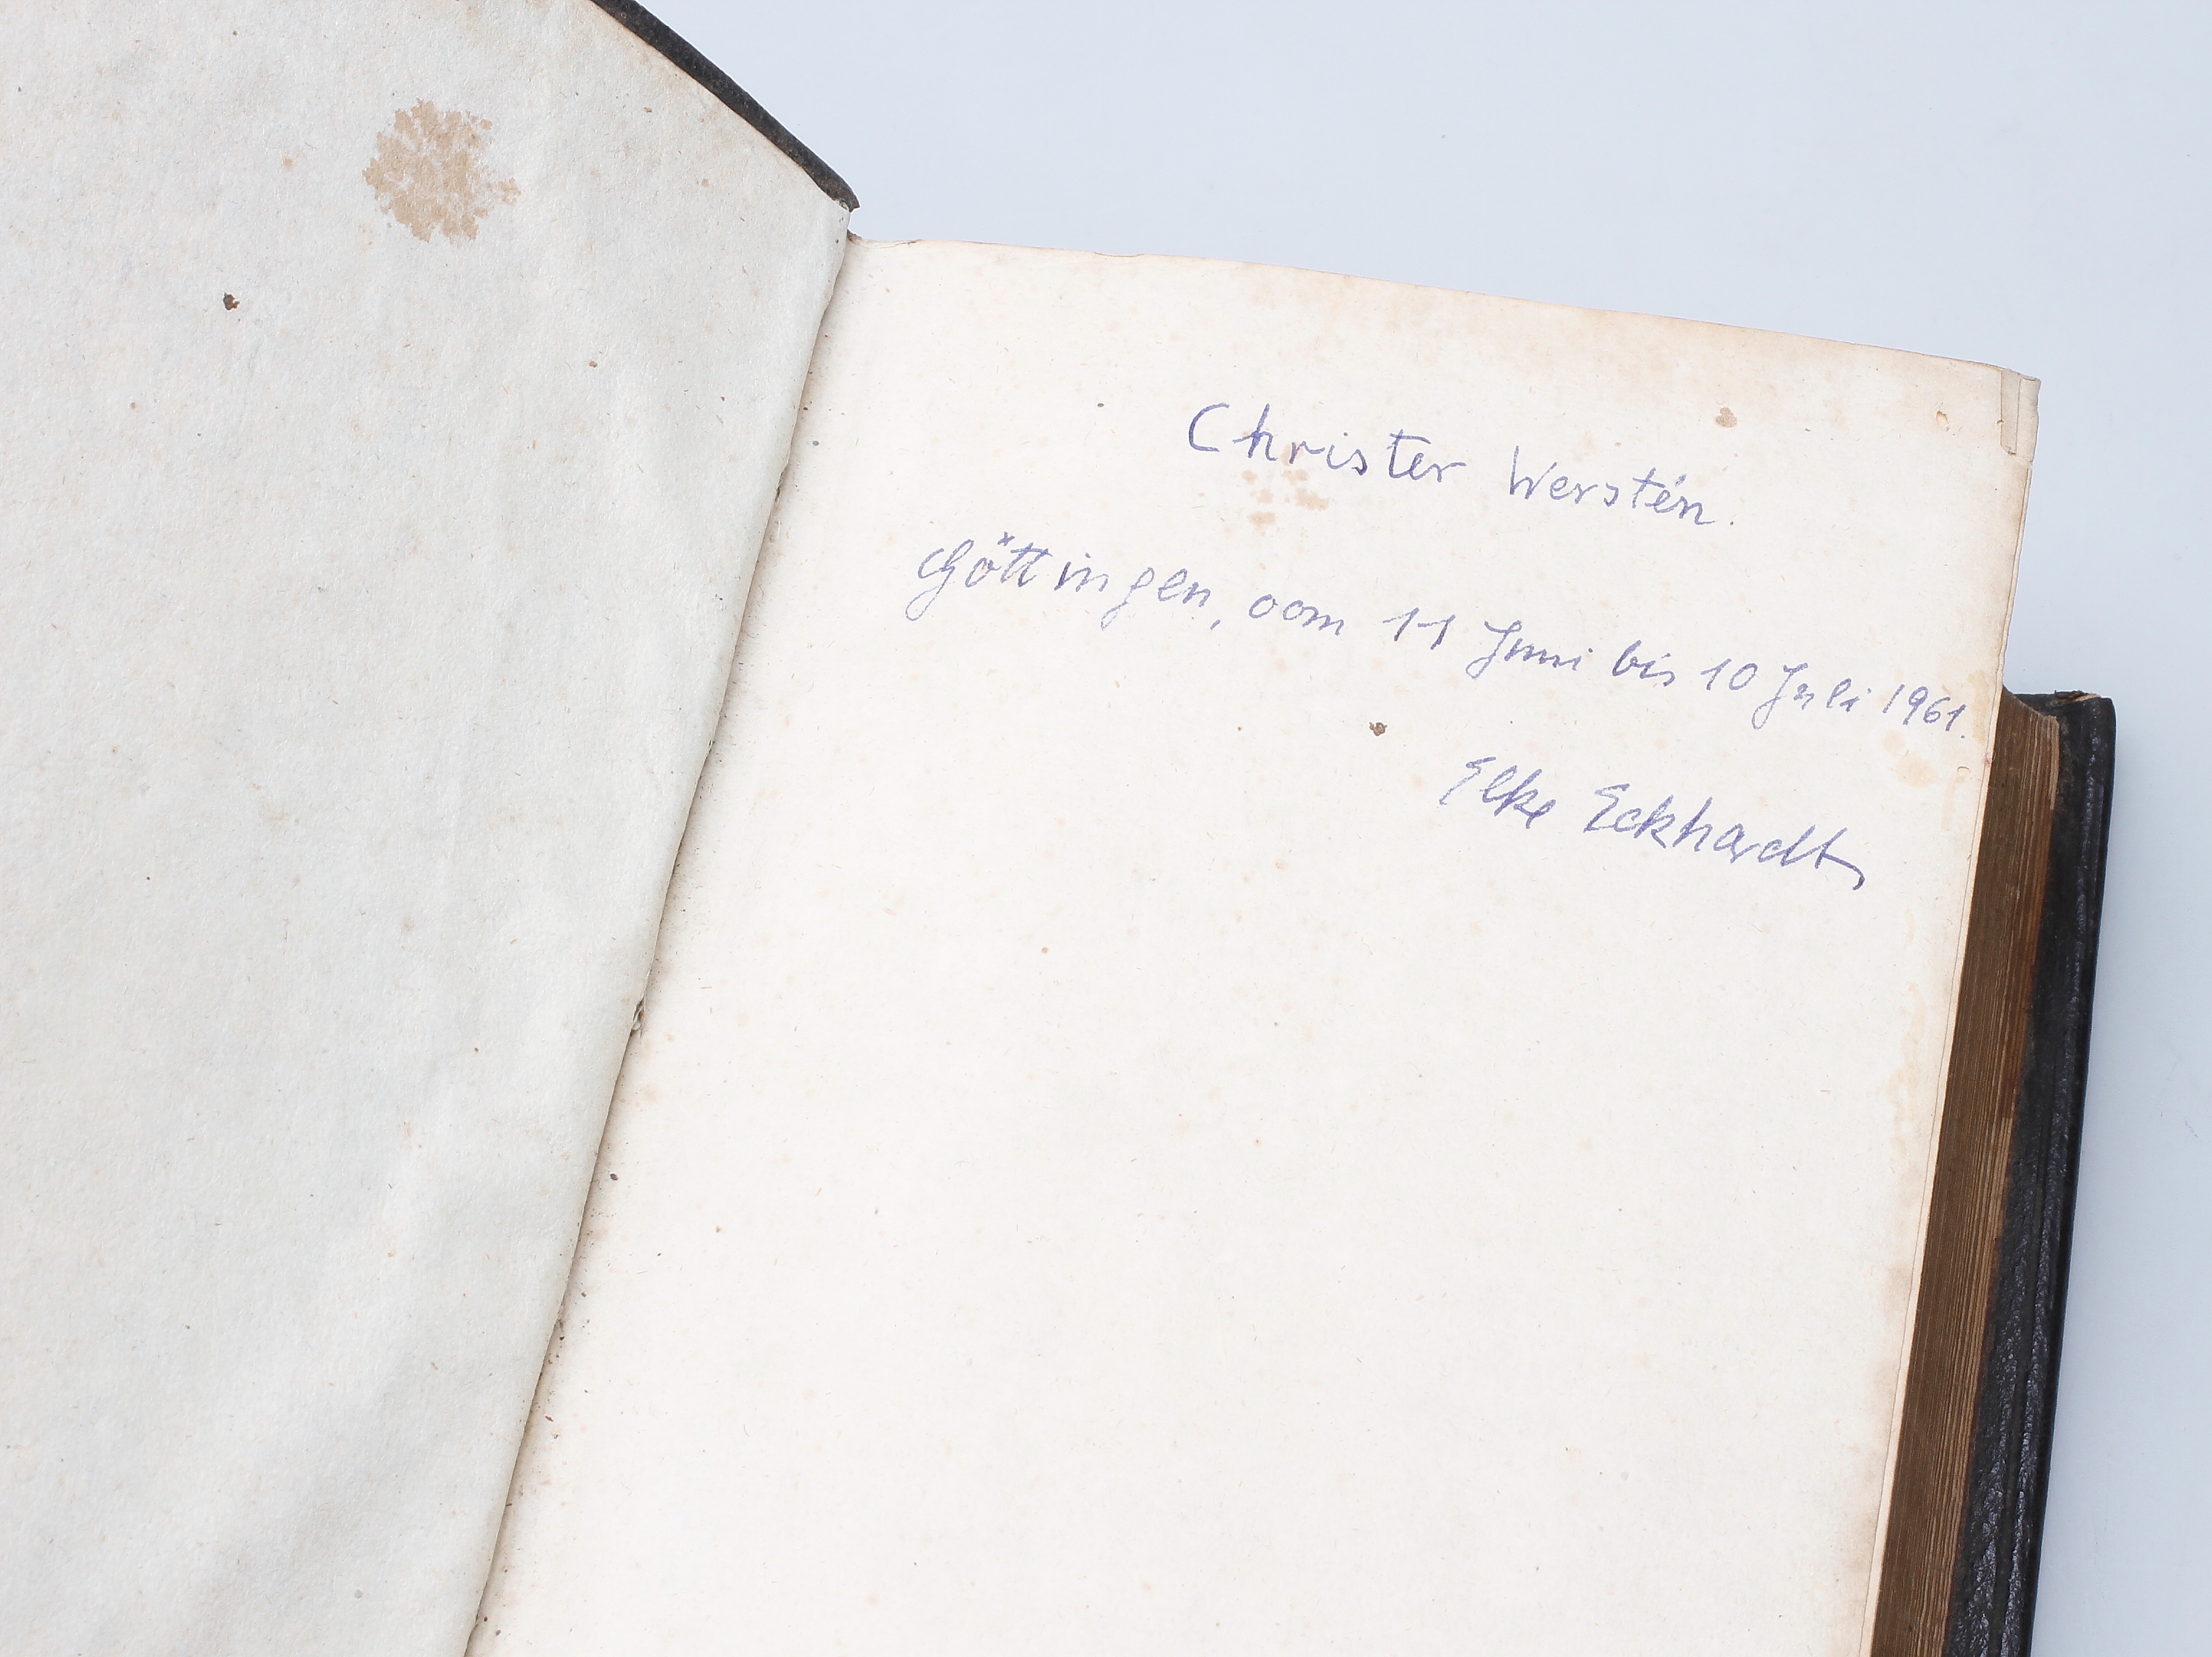 Christer Werstén.
Göttingen, vom 11 Juni bis 10 Juli 1961.
Elke Eckhardt